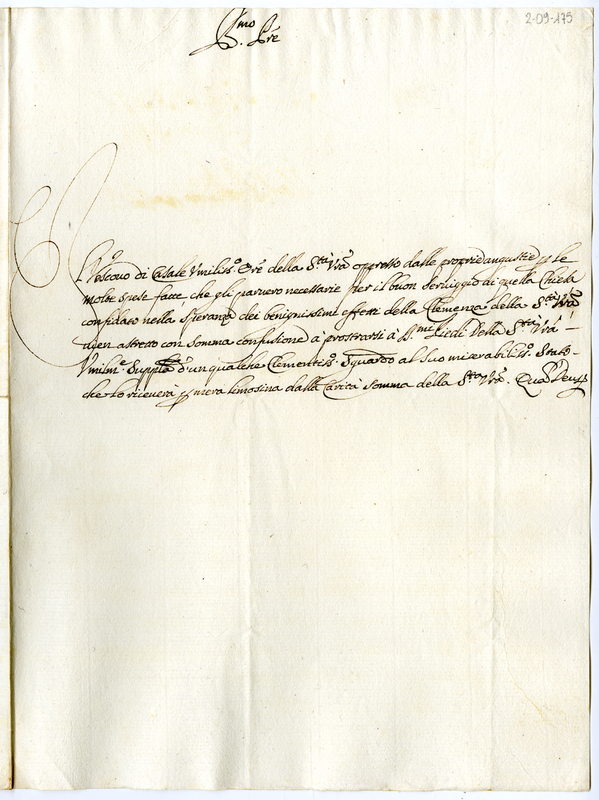 2-09-175
B.mo Prē
Il Vescovo di Casale Umiliss.o Ore della S.tà Vrã oppresso dalle proprie angustie p le
molte spese fatte, che gli parvero necessarie per il buon serviggio di quella Chiesa
confidato nella speranza dei benignissimi effetti della Clemenza della S.tà Vrã
vien astretto con somma confusione à prostrarsi à B.mi Piedi della S.tà Vrã
Umilm.e Suppla d'un qualche Clementiss.o Sguardo al suo miserabiliss.o Stato
che lo riceverà p mera limosina dalla Carità somma della S.tà Vrã. Quã Deus